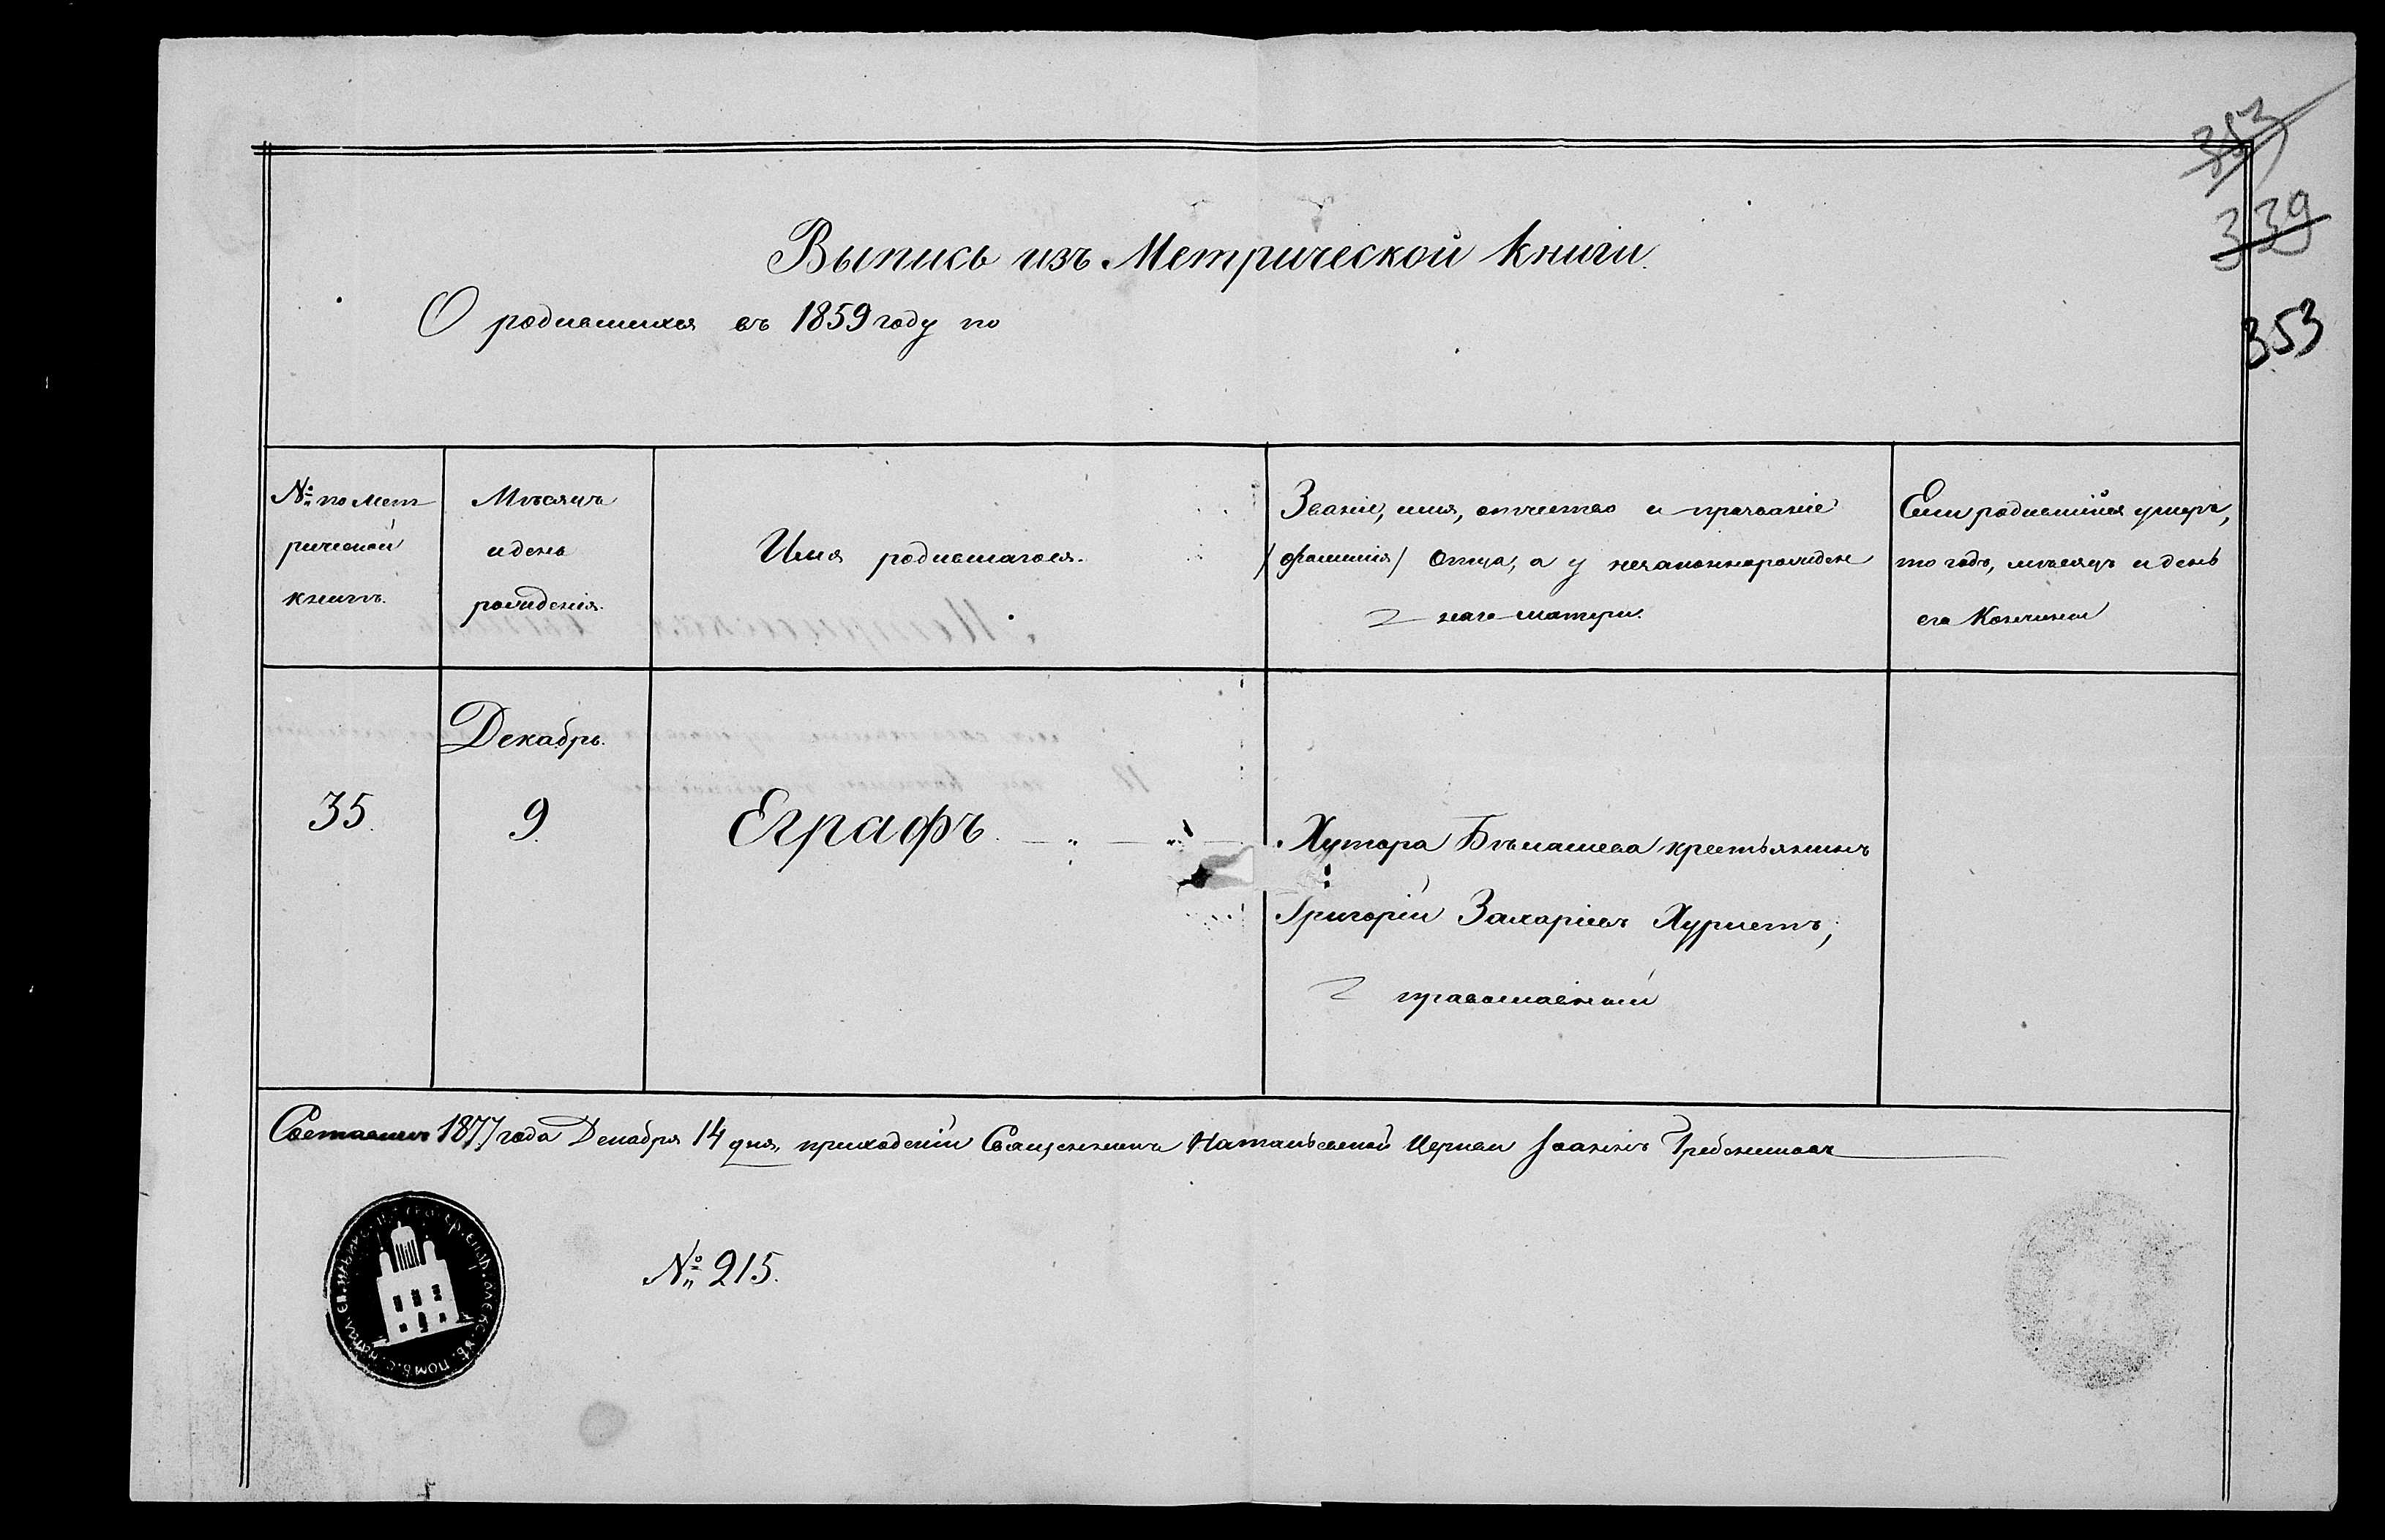 353
339
353
Выпись изъ Метрической книги.
О родившихся въ 1859 году по
№ по мет
рической
книгѣ.
Мѣсяцъ
и день
рожденія.
Имя родившагося.
Званіе, имя, отчество и прозваніе
/фамилія/ отца, а у незаконнорожден
наго матери.
Если родившійся умеръ,
то годъ, мѣсяцъ и день
его кончины
35.
Декабрь.
9.
Еграфъ.
Хутора крестьянинъ
Григорій Захаріевъ
православный
1877 года Декабря 14 дня, приходскій Священникъ Натальевской Церкви Іоаннъ Гребенниковъ
№ 215.